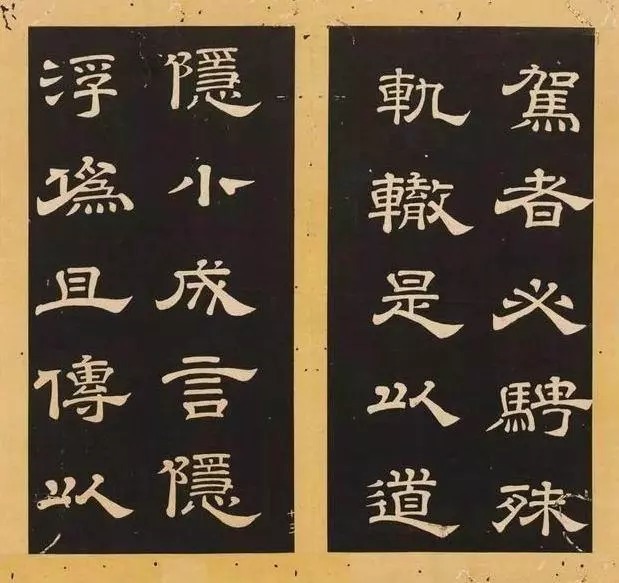 駕者必騁殊
軌轍是以道
隱小成言隱
浮僞且傳以
十三